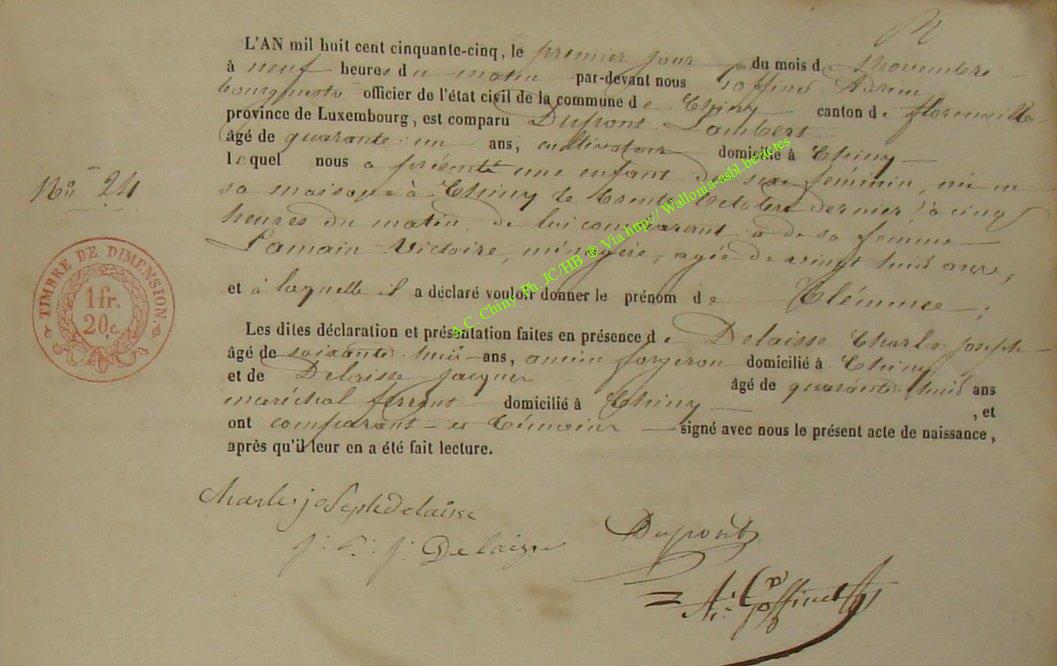 L'AN mil huit cent cinquante-cinq, le premier jour du mois d Novembre
à neuf heures du matin par-devant nous Goffinet Adrien
bourgmestre officier de l'état civil de la commune de Chiny canton de florenville
province de Luxembourg, est comparu Dupont Lambert
âgé de quarante un ans, cultivateur domicilié à Chiny
lequel nous a présenté une enfant du sexe féminin, née en
sa maison à Chiny le trente Octobre dernier à cinq
heures du matin, de lui comparant & de sa femme
Lamain Victoire, ménagère, agée de vingt huit ans,
et à laquelle il a déclaré vouloir donner le prénom de Clémence.
Les dites déclaration et présentation faites en présence de Delaisse Charles Joseph
âgé de soixante huit ans, ancien forgeron domicilié à Chiny
et de Delaisse Jacques âgé de quarante huit ans
maréchal ferrant domicilié à Chiny , et
ont comparant et témoins signé avec nous le présent acte de naissance,
après qu'il leur en a été fait lecture.
No 24
TIMBRE DE DIMENSION
1 fr.
20 c.
A.C Chiny Ph. JC/HB ® Via http:// Wallonia-asbl.be/actes
Charles joseph delaisse
Dupont
j. j. Delaisse
A. Goffinet